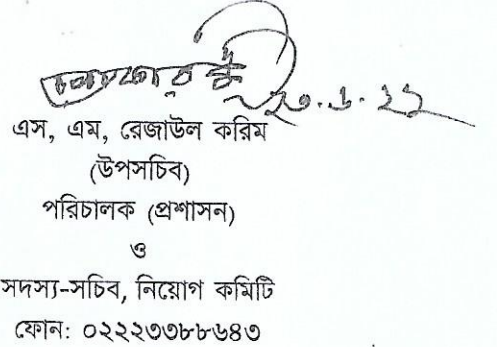 ২৩.৬.২২
এস, এম, রেজাউল করিম
(উপসচিব)
পরিচালক (প্রশাসন)
ও
সদস্য-সচিব, নিয়োগ কমিটি
ফোন: ০২২২৩৩৮৮৬৪৩